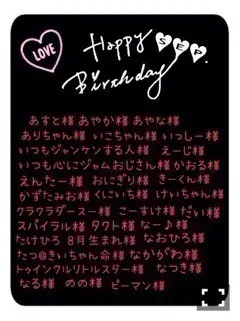 LOVE
Happy SEP.
Birthday
あすと様 あやか様 あやな様
ありちゃん様 いこちゃん様 いっしー様
いつもジャンケンする人様 えーじ様
いつも心にジャムおじさん様 かおる様
えんたー様 おにぎり様 きーくん様
かずたみお様 くにいち様 けいちゃん様
クラクラダースー様 こーすけ様 だい様
スパイラル様 タクト様 なー♪様
たけひろ 8月生まれ様 なおひろ様
たつ@きいちゃん命様 なかがわ様
トゥインクルリトルスター様 なつき様
なる様 のの様 ピーマン様